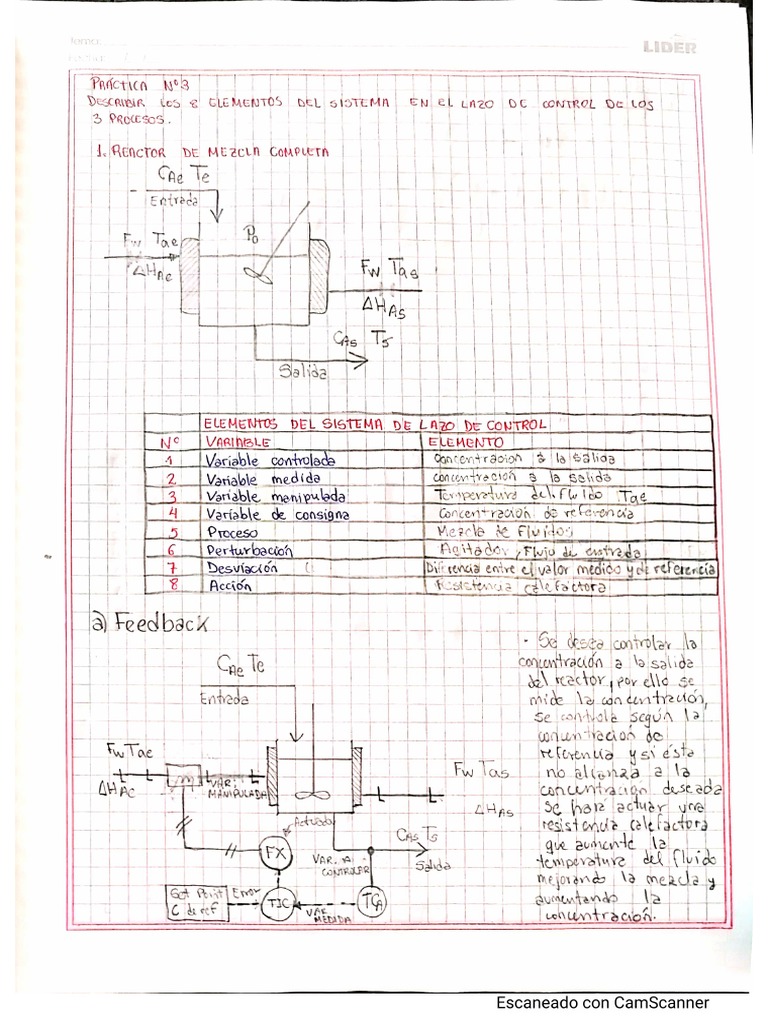 LIDER
PRÁCTICA Nº3
DESCRIBIR LOS 8 ELEMENTOS DEL SISTEMA EN EL LAZO DE CONTROL DE LOS
3 PROCESOS.
1. REACTOR DE MEZCLA COMPLETA
CAe Te
Entrada
Fw Tae
ΔHAe
Po
Fw Tas
ΔHAs
CAs Ts
Salida
ELEMENTOS DEL SISTEMA DE LAZO DE CONTROL
Nº VARIABLE ELEMENTO
1 Variable controlada Concentracion a la salida
2 Variable medida concentración a la salida
3 Variable manipulada Temperatura del fluido Tae
4 Variable de consigna Concentración de referencia
5 Proceso Mezcla de Fluidos
6 Perturbación Agitador, Flujo de entrada
7 Desviación Diferencia entre el valor medido y de referencia
8 Acción Resistencia calefactora
a) Feedback
CAe Te
Entrada
Fw Tae
ΔHAc
VAR.
MANIPULADA
Fw Tas
ΔHAs
Actuador
FX
VAR. A
CONTROLAR
CAs Ts
Salida
Set Point
C de ref
Error
TIC
VAR
MEDIDA
TCA
· Se desea controlar la
concentración a la salida
del reactor, por ello se
mide la concentración,
se controla según la
concentración de
referencia y si ésta
no alcanza a la
concentracion deseada
se hará actuar una
resistencia calefactora
que aumente la
temperatura del fluido
mejorando la mezcla y
aumentando la
concentración.
Escaneado con CamScanner